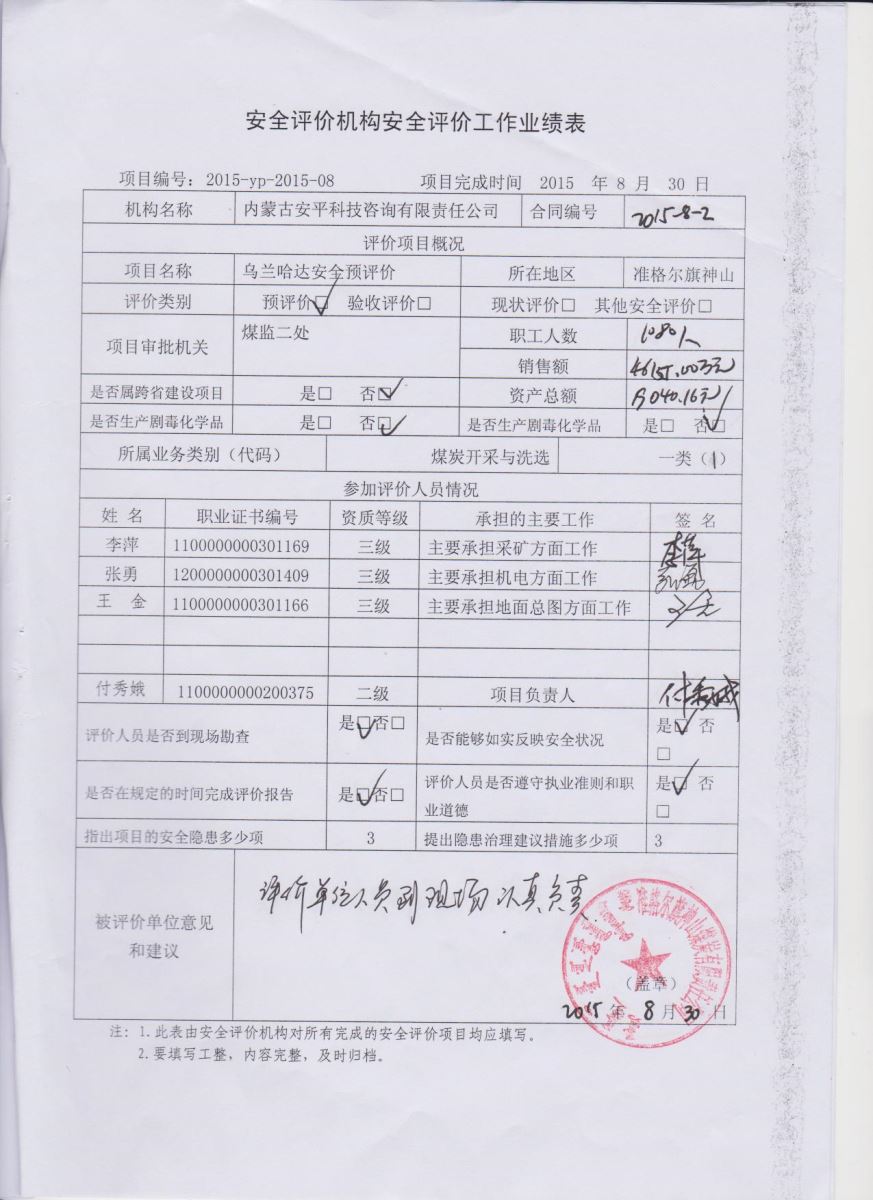 安全评价机构安全评价工作业绩表
项目编号：2015-yp-2015-08 项目完成时间 2015 年 8 月 30 日
机构名称 内蒙古安平科技咨询有限责任公司 合同编号 2015-8-2
评价项目概况
项目名称 乌兰哈达安全预评价 所在地区 准格尔旗神山
评价类别 预评价☑ 验收评价□ 现状评价□ 其他安全评价□
项目审批机关 煤监二处 职工人数 1080人
销售额 46155.00万元
是否属跨省建设项目 是□ 否☑ 资产总额
是否生产剧毒化学品 是□ 否☑ 是否生产剧毒化学品 是□ 否☑
所属业务类别（代码） 煤炭开采与洗选 一类（1）
参加评价人员情况
姓 名 职业证书编号 资质等级 承担的主要工作 签 名
李萍 1100000000301169 三级 主要承担采矿方面工作 李萍
张勇 1200000000301409 三级 主要承担机电方面工作 张勇
王 金 1100000000301166 三级 主要承担地面总图方面工作 王金
付秀娥 1100000000200375 二级 项目负责人 付秀娥
评价人员是否到现场勘查 是☑否□ 是否能够如实反映安全状况 是☑ 否
□
是否在规定的时间完成评价报告 是☑否□ 评价人员是否遵守执业准则和职
业道德 是☑ 否
□
指出项目的安全隐患多少项 3 提出隐患治理建议措施多少项 3
被评价单位意见
和建议
评价单位人员到现场认真负责.
（盖章）
2015 年 8 月 30 日
注：1.此表由安全评价机构对所有完成的安全评价项目均应填写。
2.要填写工整，内容完整，及时归档。